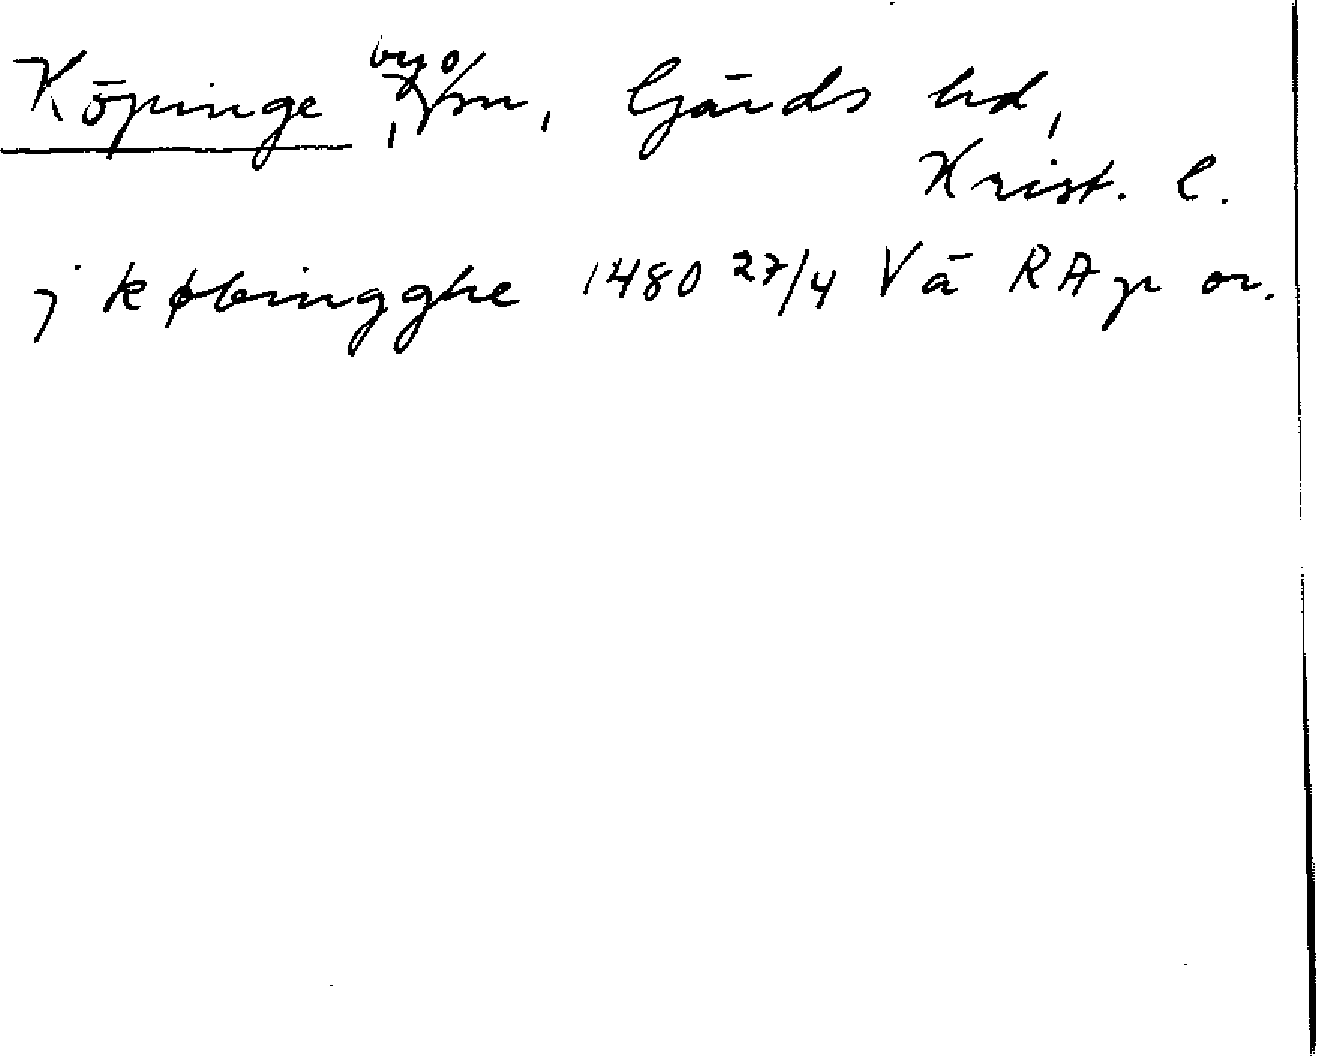 Köpinge by o/sn, Gärds hd,
Krist. l.
j købingghe 1480 27/4 Vä RAp or.